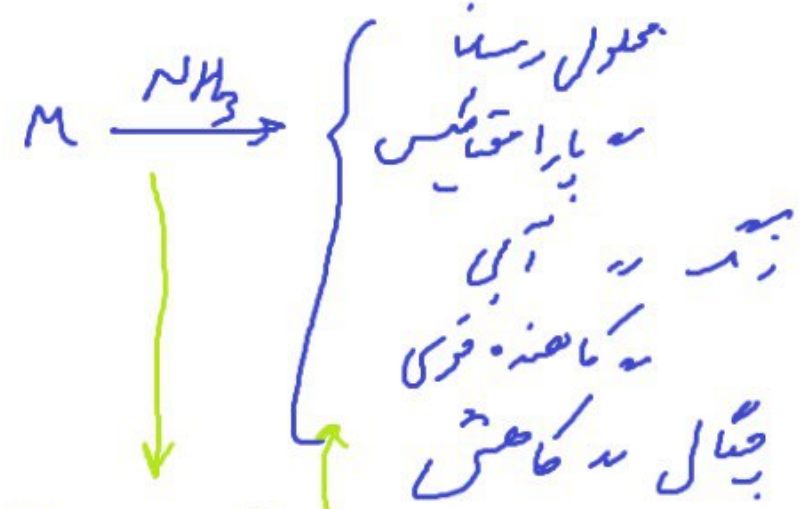 M NH3
محلول رسانا
〃 پارامغناطیس
رنگ 〃 آبی
〃 کاهنده قوی
چگال 〃 کاهش